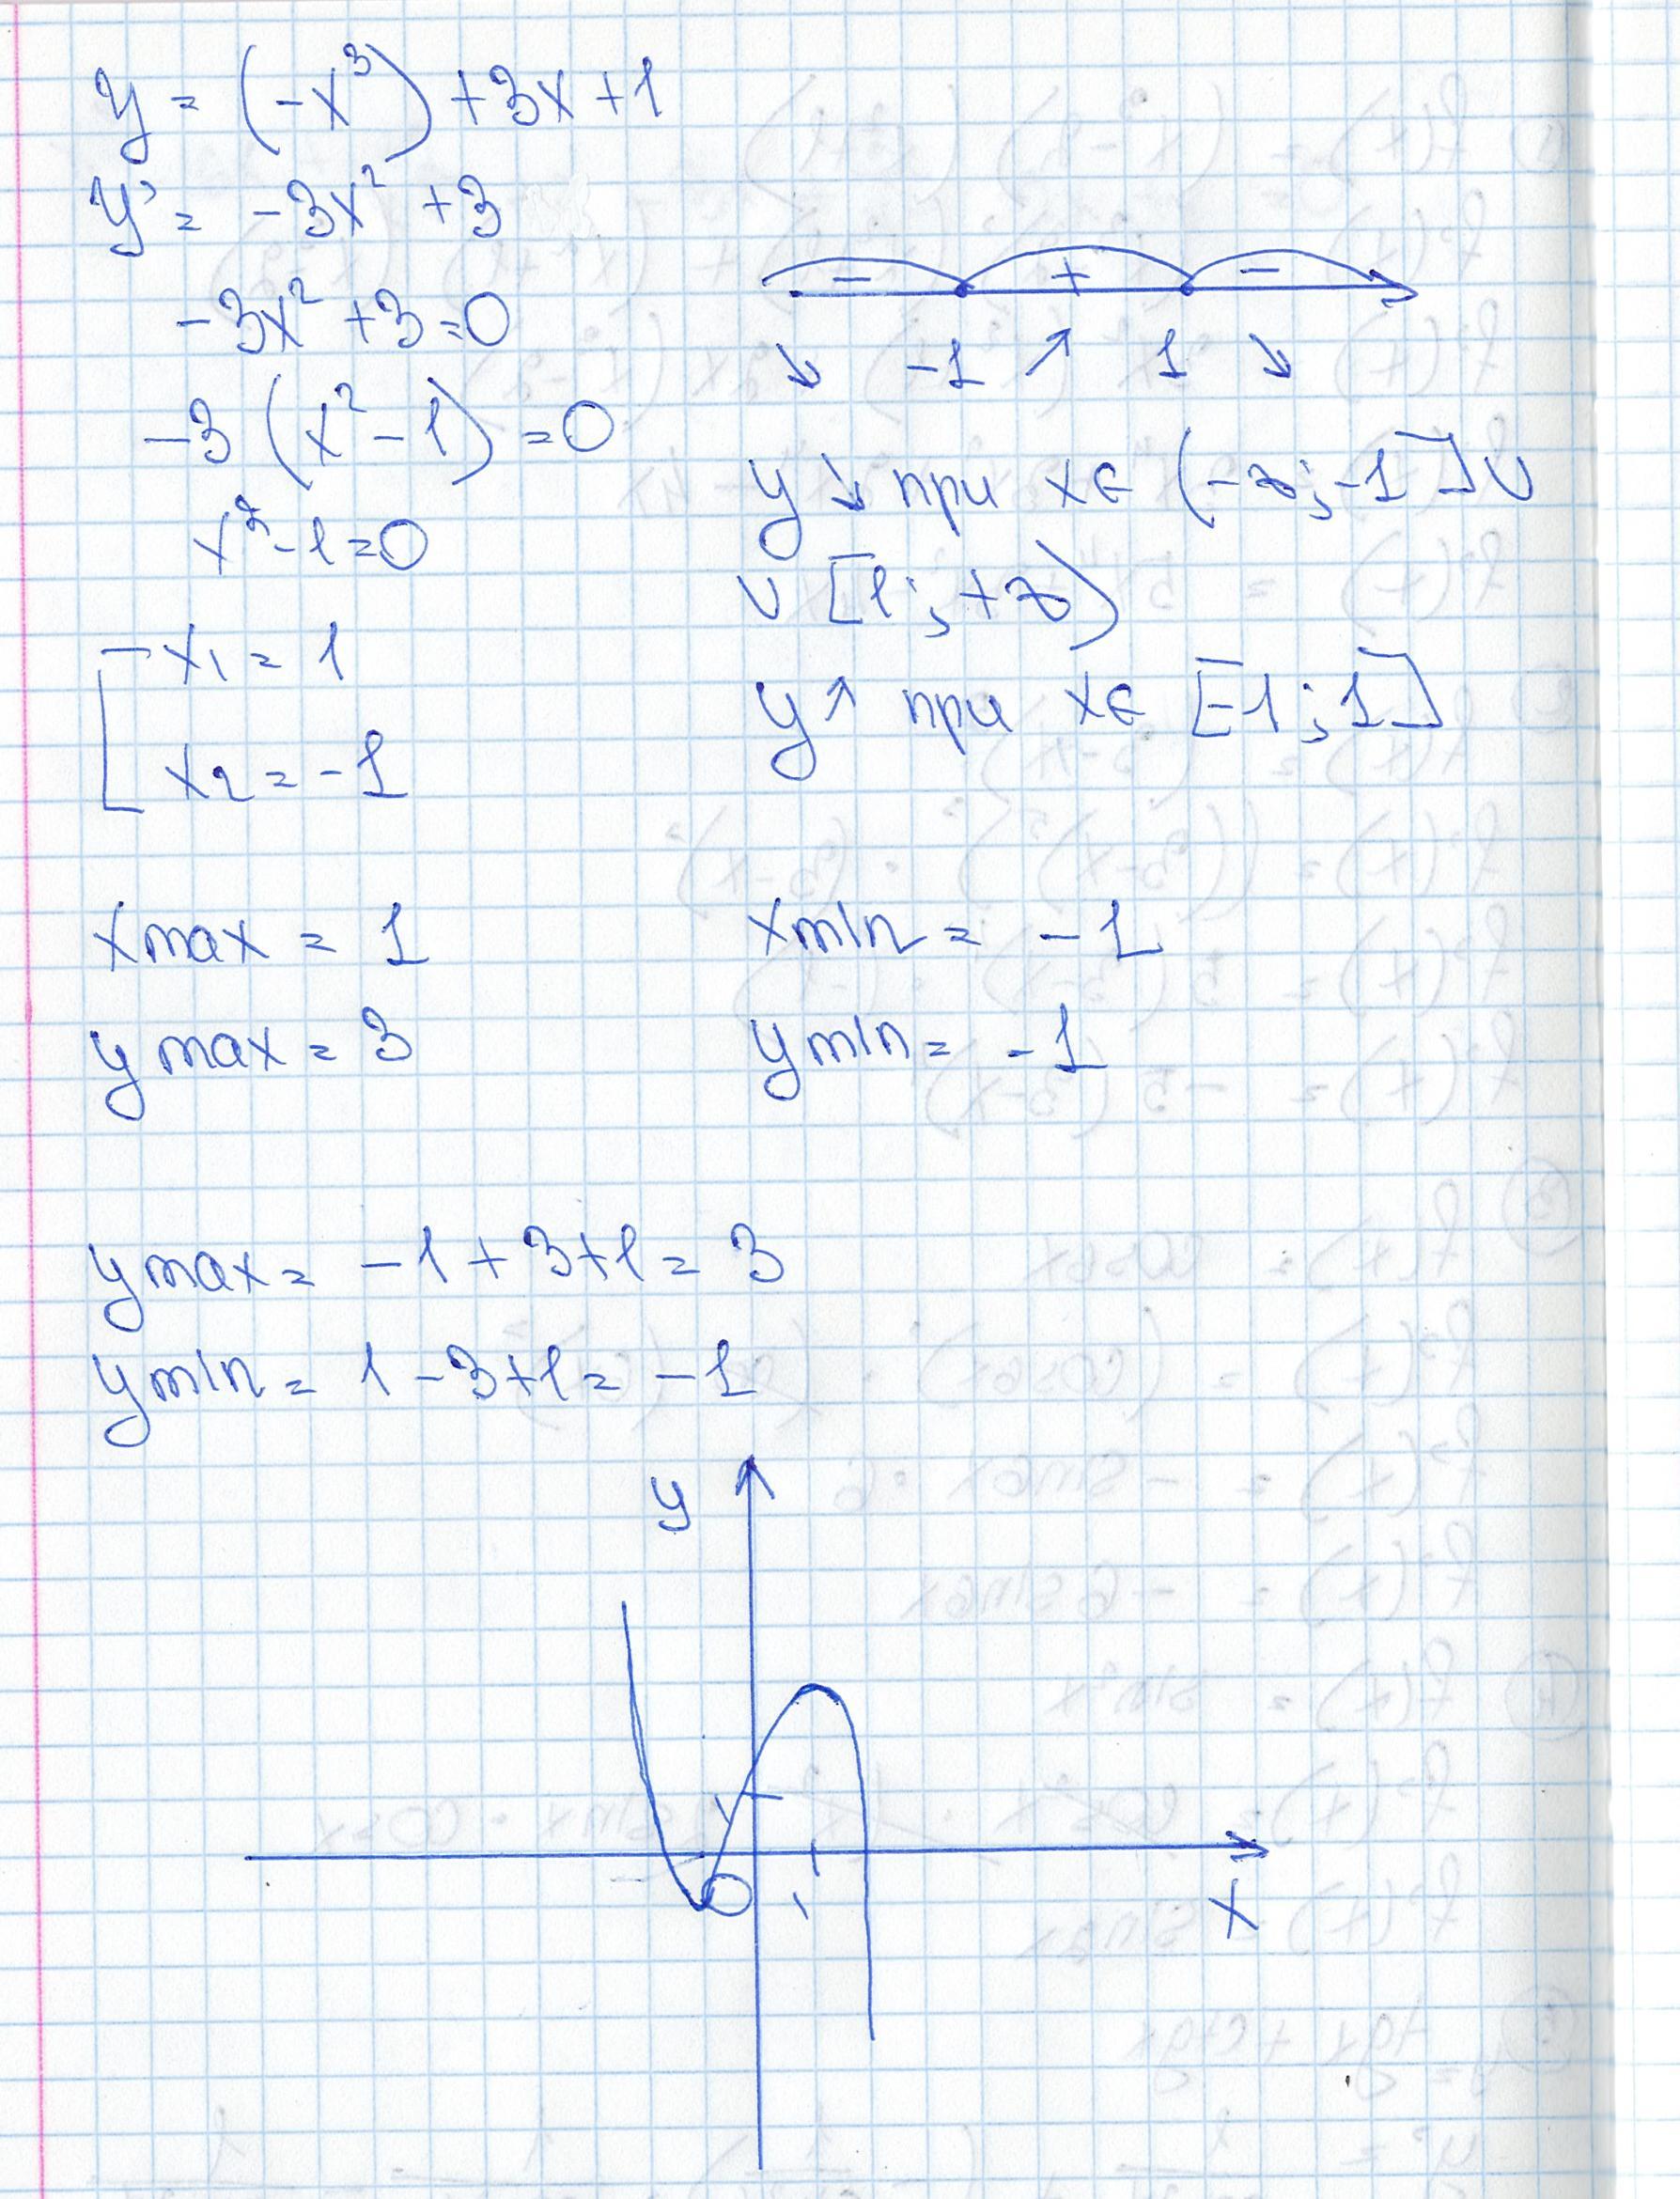 y = (-x³) + 3x + 1
y' = -3x² + 3
-3x² + 3 = 0
-3 (x² - 1) = 0
x² - 1 = 0
x₁ = 1
x₂ = -1
- + -
↘ -1 ↗ 1 ↘
y ↘ при x ∈ (-∞; -1] ∪
∪ [1; +∞)
y ↗ при x ∈ [-1; 1]
xmax = 1
ymax = 3
xmin = -1
ymin = -1
ymax = -1 + 3 + 1 = 3
ymin = 1 - 3 + 1 = -1
y
1
0
1
x